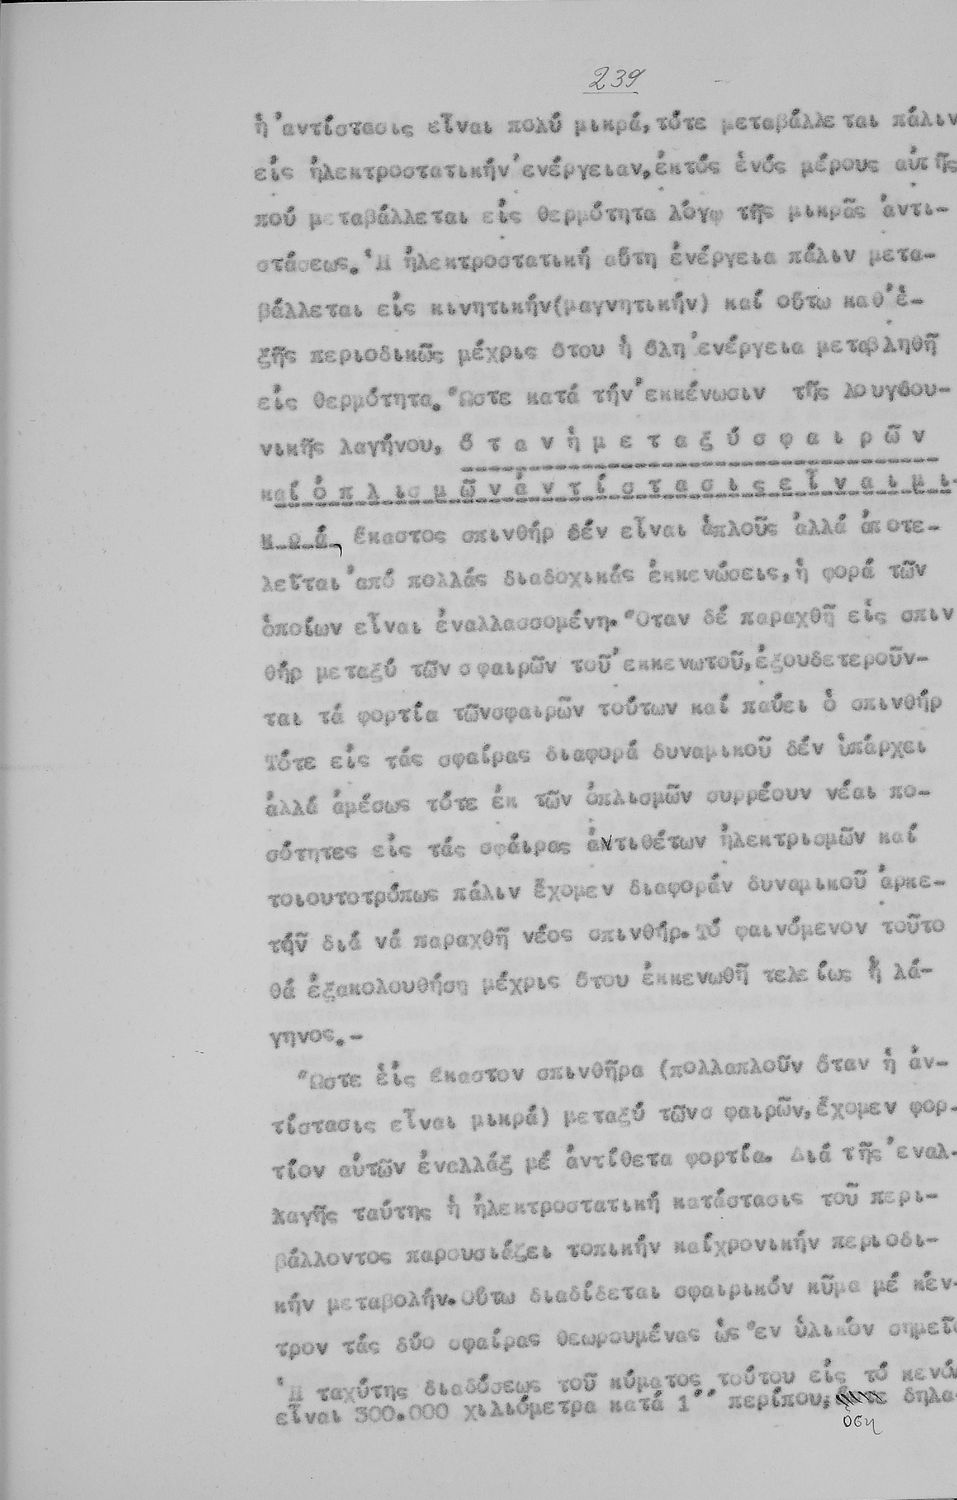 239
ἡ ἀντίστασις εἶναι πολύ μικρά, τότε μεταβάλλεται πάλιν
εἰς ἠλεκτροστατικήν ἐνέργειαν, ἐκτός ἑνός μέρους αὐτῆς
πού μεταβάλλεται εἰς θερμότητα λόγῳ τῆς μικρᾶς ἀντι-
στάσεως. Ἡ ἠλεκτροστατική αὕτη ἐνέργεια πάλιν μετα-
βάλλεται εἰς κινητικήν(μαγνητικήν) καί οὕτω καθ' ἑ-
ξῆς περιοδικῶς μέχρις ὅτου ἡ ὅλη ἐνέργεια μεταβληθῆ
εἰς θερμότητα. Ὥστε κατά τήν ἐκκένωσιν τῆς λουγδου-
νικῆς λαγήνου, ὅ τ α ν ἡ μ ε τ α ξ ύ σ φ α ι ρ ῶ ν
καί ὁ π λ ι σ μ ῶ ν ἀ ν τ ί σ τ α σ ι ς ε ἶ ν α ι μ ι-
κ ρ ά, ἕκαστος σπινθήρ δέν εἶναι ἁπλοῦς ἀλλά ἀποτε-
λεῖται ἀπό πολλάς διαδοχικάς ἐκκενώσεις, ἡ φορά τῶν
ὁποίων εἶναι ἐναλλασσομένη. Ὅταν δέ παραχθῆ εἰς σπιν
θήρ μεταξύ τῶν σφαιρῶν τοῦ ἐκκενωτοῦ, ἐξουδετεροῦν-
ται τά φορτία τῶνσφαιρῶν τούτων καί παύει ὁ σπινθήρ
Τότε εἰς τάς σφαίρας διαφορά δυναμικοῦ δέν ὑπάρχει
ἀλλά ἀμέσως τότε ἐκ τῶν ὁπλισμῶν συρρέουν νέαι πο-
σότητες εἰς τάς σφάιρας ἀντιθέτων ἠλεκτρισμῶν καί
τοιουτοτρόπως πάλιν ἔχομεν διαφοράν δυναμικοῦ ἀρκε-
τήν διά νά παραχθῆ νέος σπινθήρ. Τό φαινόμενον τοῦτο
θά ἐξακολουθήση μέχρις ὅτου ἐκκενωθῆ τελείως ἡ λά-
γηνος.-
Ὥστε εἰς ἕκαστον σπινθῆρα (πολλαπλοῦν ὅταν ἡ ἀν-
τίστασις εἶναι μικρά) μεταξύ τῶνσ φαιρῶν, ἔχομεν φορ-
τίον αὐτῶν ἐναλλάξ μέ ἀντίθετα φορτία. Διά τῆς ἐναλ-
λαγῆς ταύτης ἡ ἠλεκτροστατική κατάστασις τοῦ περι-
βάλλοντος παρουσιάζει τοπικήν καίχρονικήν περιοδι-
κήν μεταβολήν. Οὕτω διαδίδεται σφαιρικόν κῦμα μέ κέν-
τρον τάς δύο σφαίρας θεωρουμένας ὡς ἕν ὑλικόν σημεῖο
Ἡ ταχύτης διαδόσεως τοῦ κύματος τούτου εἰς τό κενό
εἶναι 300.000 χιλιόμετρα κατά 1'' περίπου, δηλα-
ὅση